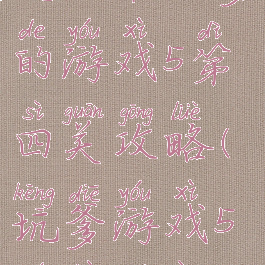 de yóu xì dì
的游戏5第
sì guān gōng lüè
四关攻略(
kēng diē yóu xì
坑爹游戏5